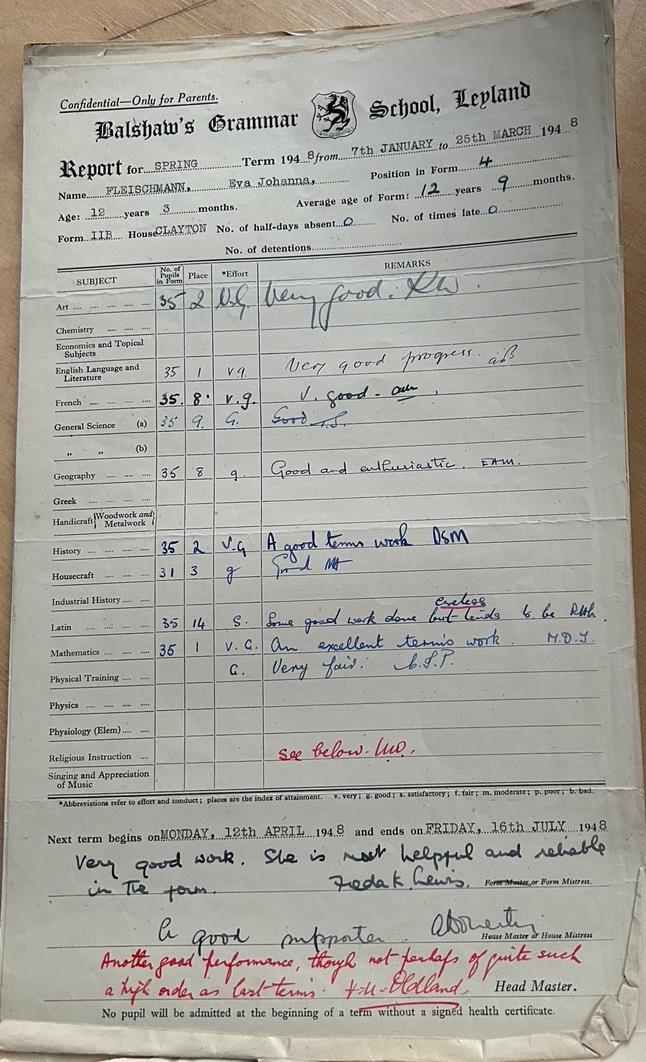 Confidential—Only for Parents.
Balshaw's Grammar School, Leyland
Report for SPRING Term 1948 from 7th JANUARY to 25th MARCH 1948
Name FLEISCHMANN, Eva Johanna, Position in Form 4
Age: 12 years 3 months. Average age of Form: 12 years 9 months.
Form IIB House CLAYTON No. of half-days absent 0 No. of times late 0
No. of detentions
SUBJECT No. of Pupils in Form Place *Effort REMARKS
Art 35 2 V.G. Very good.
Chemistry
Economics and Topical
Subjects
English Language and
Literature 35 1 vg. Very good progress.
French 35. 8. v.g. V. good -
General Science (a) 35 9. G. Good
„ „ (b)
Geography 35 8 g. Good and enthusiastic. EAM.
Greek
Handicraft {Woodwork and Metalwork}
History 35 2 V.G A good terms work DSM
Housecraft 31 3 g Good
Industrial History
careless
Latin 35 14 S. Some good work done but tends to be
Mathematics 35 1 V. G. An excellent term's work. M.D.J.
Physical Training G. Very fair.
Physics
Physiology (Elem)
Religious Instruction See below.
Singing and Appreciation
of Music
*Abbreviations refer to effort and conduct; places are the index of attainment. v. very; g. good; s. satisfactory; f. fair; m. moderate; p. poor; b. bad.
Next term begins on MONDAY, 12th APRIL 1948 and ends on FRIDAY, 16th JULY 1948
Very good work. She is most helpful and reliable
in the form. Freda K. Lewis. Form Master or Form Mistress.
A good supporter House Master or House Mistress
Another good performance, though not perhaps of quite such
a high order as last term's. Oldland. Head Master.
No pupil will be admitted at the beginning of a term without a signed health certificate.